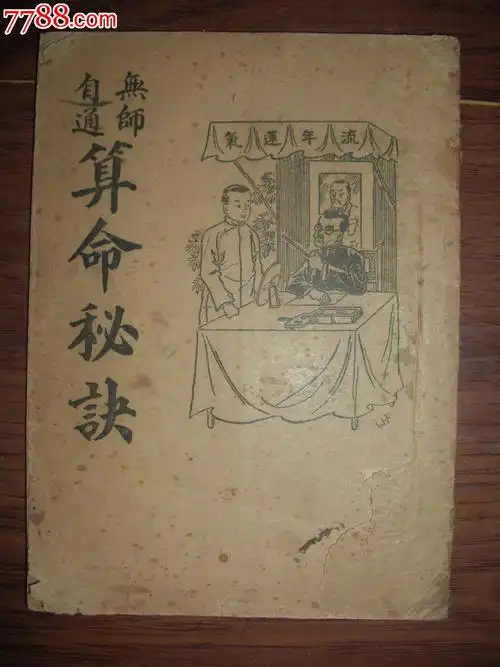 7788.com
無師
自通
算命秘訣
流年運氣